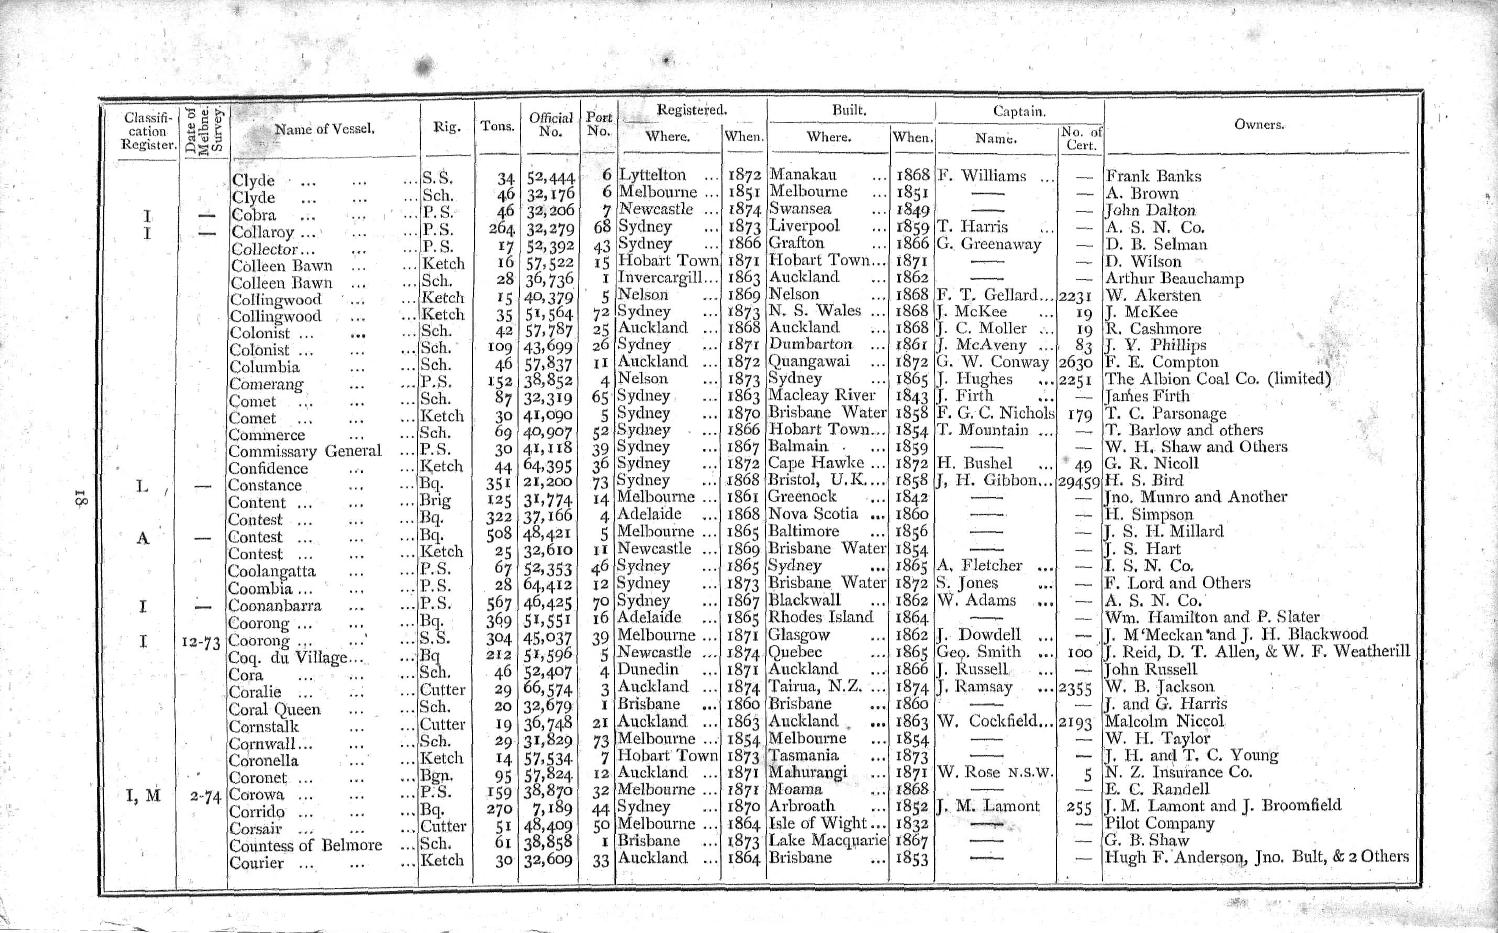 Classifi-cation Register. Date of Melbne. Survey. Name of Vessel. Rig. Tons. Official No. Port No. Registered. Where. When. Built. Where. When. Captain. Name. No. of Cert. Owners.
Clyde ... ... ... S.S. 34 52,444 6 Lyttelton ... 1872 Manakau ... 1868 F. Williams ... — Frank Banks
Clyde ... ... ... Sch. 46 32,176 6 Melbourne ... 1851 Melbourne ... 1851 — — A. Brown
I — Cobra ... ... ... P.S. 46 32,206 7 Newcastle ... 1874 Swansea ... 1849 — — John Dalton
I — Collaroy ... ... ... P.S. 264 32,279 68 Sydney ... 1873 Liverpool ... 1859 T. Harris ... — A. S. N. Co.
Collector ... ... ... P.S. 17 52,392 43 Sydney ... 1866 Grafton ... 1866 G. Greenaway — D. B. Selman
Colleen Bawn ... ... Ketch 16 57,522 15 Hobart Town 1871 Hobart Town... 1871 — — D. Wilson
Colleen Bawn ... ... Sch. 28 36,736 1 Invercargill... 1863 Auckland ... 1862 — — Arthur Beauchamp
Collingwood ... ... Ketch 15 40,379 5 Nelson ... 1869 Nelson ... 1868 F. T. Gellard... 2231 W. Akersten
Collingwood ... ... Ketch 35 51,564 72 Sydney ... 1873 N. S. Wales ... 1868 J. McKee ... 19 J. McKee
Colonist ... ... ... Sch. 42 57,787 25 Auckland ... 1868 Auckland ... 1868 J. C. Moller ... 19 R. Cashmore
Colonist ... ... ... Sch. 109 43,699 26 Sydney ... 1871 Dumbarton ... 1861 J. McAveny ... 83 J. Y. Phillips
Columbia ... ... Sch. 46 57,837 11 Auckland ... 1872 Quangawai ... 1872 G. W. Conway 2630 F. E. Compton
Comerang ... ... P.S. 152 38,852 4 Nelson ... 1873 Sydney ... 1865 J. Hughes ... 2251 The Albion Coal Co. (limited)
Comet ... ... ... Sch. 87 32,319 65 Sydney ... 1863 Macleay River 1843 J. Firth ... — James Firth
Comet ... ... ... Ketch 30 41,090 5 Sydney ... 1870 Brisbane Water 1858 F. G. C. Nichols 179 T. C. Parsonage
Commerce ... ... Sch. 69 40,907 52 Sydney ... 1866 Hobart Town... 1854 T. Mountain ... — T. Barlow and others
Commissary General ... P.S. 30 41,118 39 Sydney ... 1867 Balmain ... 1859 — — W. H. Shaw and Others
Confidence ... ... Ketch 44 64,395 36 Sydney ... 1872 Cape Hawke ... 1872 H. Bushel ... 49 G. R. Nicoll
L — Constance ... ... Bq. 351 21,200 73 Sydney ... 1868 Bristol, U.K.... 1858 J. H. Gibbon... 29459 H. S. Bird
Content ... ... ... Brig 125 31,774 14 Melbourne ... 1861 Greenock ... 1842 — — Jno. Munro and Another
Contest ... ... ... Bq. 322 37,166 4 Adelaide ... 1868 Nova Scotia ... 1860 — — H. Simpson
A — Contest ... ... ... Bq. 508 48,421 5 Melbourne ... 1865 Baltimore ... 1856 — — J. S. H. Millard
Contest ... ... ... Ketch 25 32,610 11 Newcastle ... 1869 Brisbane Water 1854 — — J. S. Hart
Coolangatta ... ... P.S. 67 52,353 46 Sydney ... 1865 Sydney ... 1865 A. Fletcher ... — I. S. N. Co.
Coombia ... ... ... P.S. 28 64,412 12 Sydney ... 1873 Brisbane Water 1872 S. Jones ... — F. Lord and Others
I — Coonanbarra ... ... P.S. 567 46,425 70 Sydney ... 1867 Blackwall ... 1862 W. Adams ... — A. S. N. Co.
Coorong ... ... ... Bq. 369 51,551 16 Adelaide ... 1865 Rhodes Island 1864 — — Wm. Hamilton and P. Slater
I 12-73 Coorong ... ... ... S.S. 304 45,037 39 Melbourne ... 1871 Glasgow ... 1862 J. Dowdell ... — J. M'Meckan and J. H. Blackwood
Coq. du Village... ... Bq 212 51,596 5 Newcastle ... 1874 Quebec ... 1865 Geo. Smith ... 100 J. Reid, D. T. Allen, & W. F. Weatherill
Cora ... ... ... Sch. 46 52,407 4 Dunedin ... 1871 Auckland ... 1866 J. Russell ... — John Russell
Coralie ... ... ... Cutter 29 66,574 3 Auckland ... 1874 Tairua, N.Z. ... 1874 J. Ramsay ... 2355 W. B. Jackson
Coral Queen ... ... Sch. 20 32,679 1 Brisbane ... 1860 Brisbane ... 1860 — — J. and G. Harris
Cornstalk ... ... Cutter 19 36,748 21 Auckland ... 1863 Auckland ... 1863 W. Cockfield... 2193 Malcolm Niccol
Cornwall... ... ... Sch. 29 31,829 73 Melbourne ... 1854 Melbourne ... 1854 — — W. H. Taylor
Coronella ... ... Ketch 14 57,534 7 Hobart Town 1873 Tasmania ... 1873 — — J. H. and T. C. Young
Coronet ... ... ... Bgn. 95 57,824 12 Auckland ... 1871 Mahurangi ... 1871 W. Rose N.S.W. 5 N. Z. Insurance Co.
I, M 2-74 Corowa ... ... ... P.S. 159 38,870 32 Melbourne ... 1871 Moama ... 1868 — — E. C. Randell
Corrido ... ... ... Bq. 270 7,189 44 Sydney ... 1870 Arbroath ... 1852 J. M. Lamont 255 J. M. Lamont and J. Broomfield
Corsair ... ... ... Cutter 51 48,409 50 Melbourne ... 1864 Isle of Wight ... 1832 — — Pilot Company
Countess of Belmore ... Sch. 61 38,858 1 Brisbane ... 1873 Lake Macquarie 1867 — — G. B. Shaw
Courier ... ... ... Ketch 30 32,609 33 Auckland ... 1864 Brisbane ... 1853 — — Hugh F. Anderson, Jno. Bult, & 2 Others
81